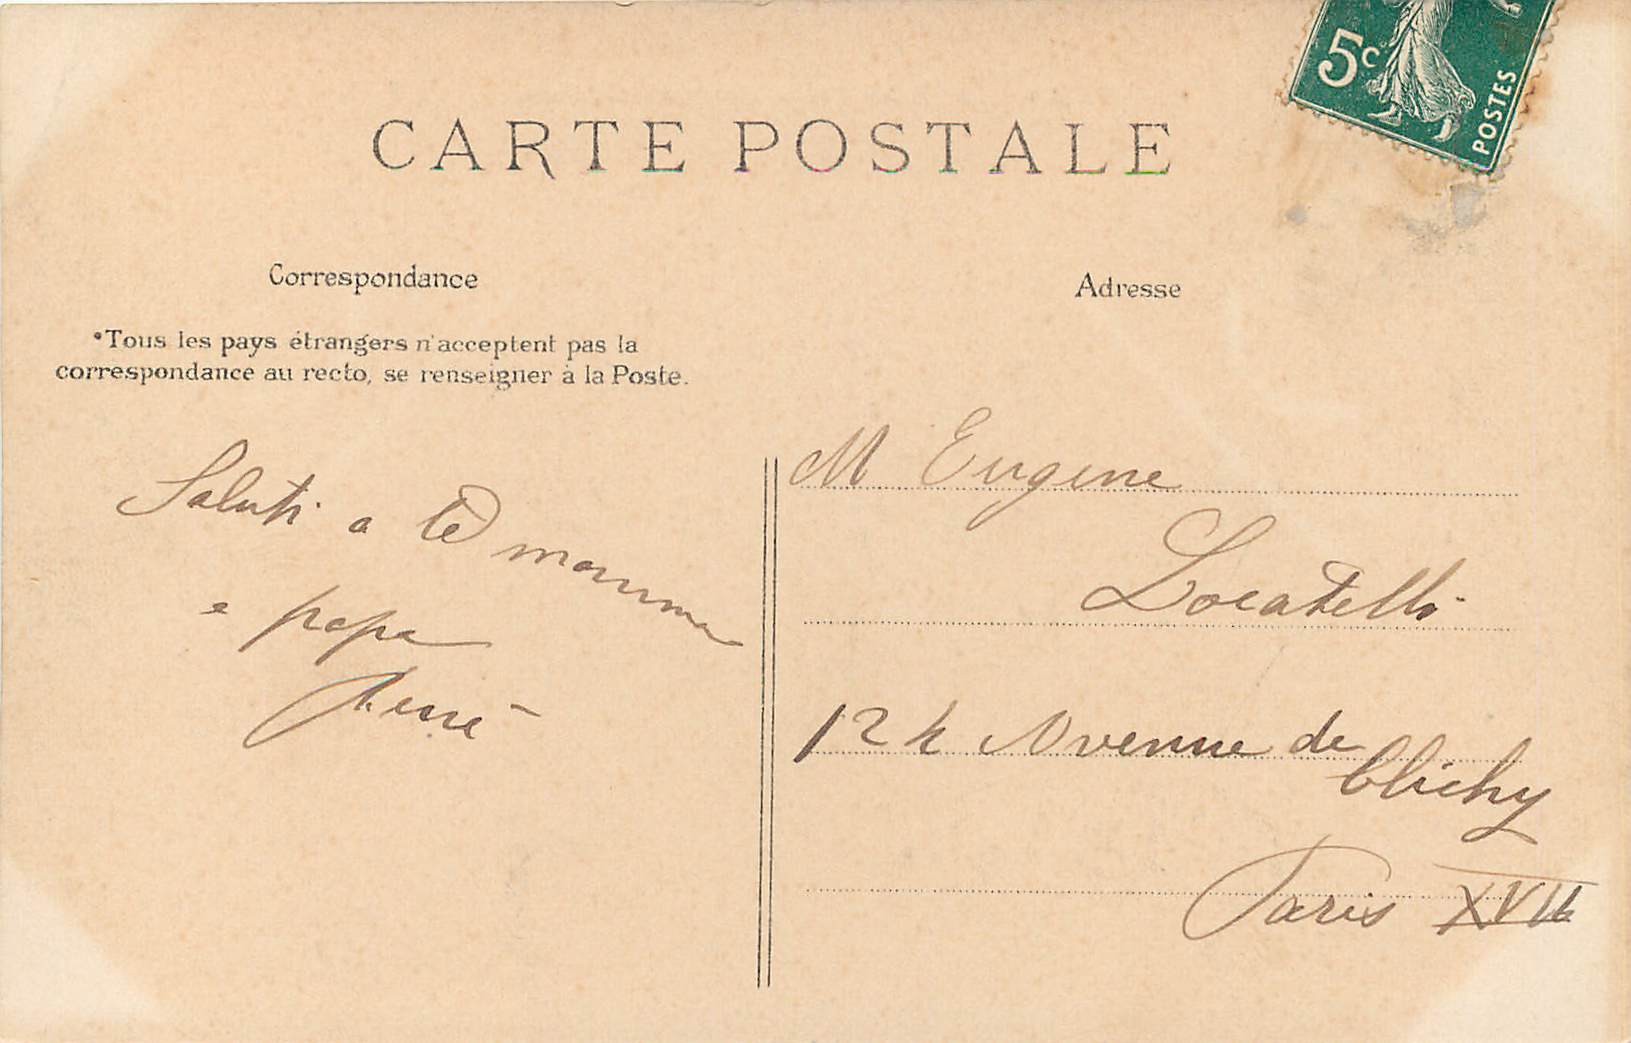 5c
POSTES
CARTE POSTALE
Correspondance
*Tous les pays étrangers n'acceptent pas la
correspondance au recto, se renseigner à la Poste.
Saluti a tè mamma
e papa
René
Adresse
M Eugene
Locatelli
124 Avenue de
Clichy
Paris XVII